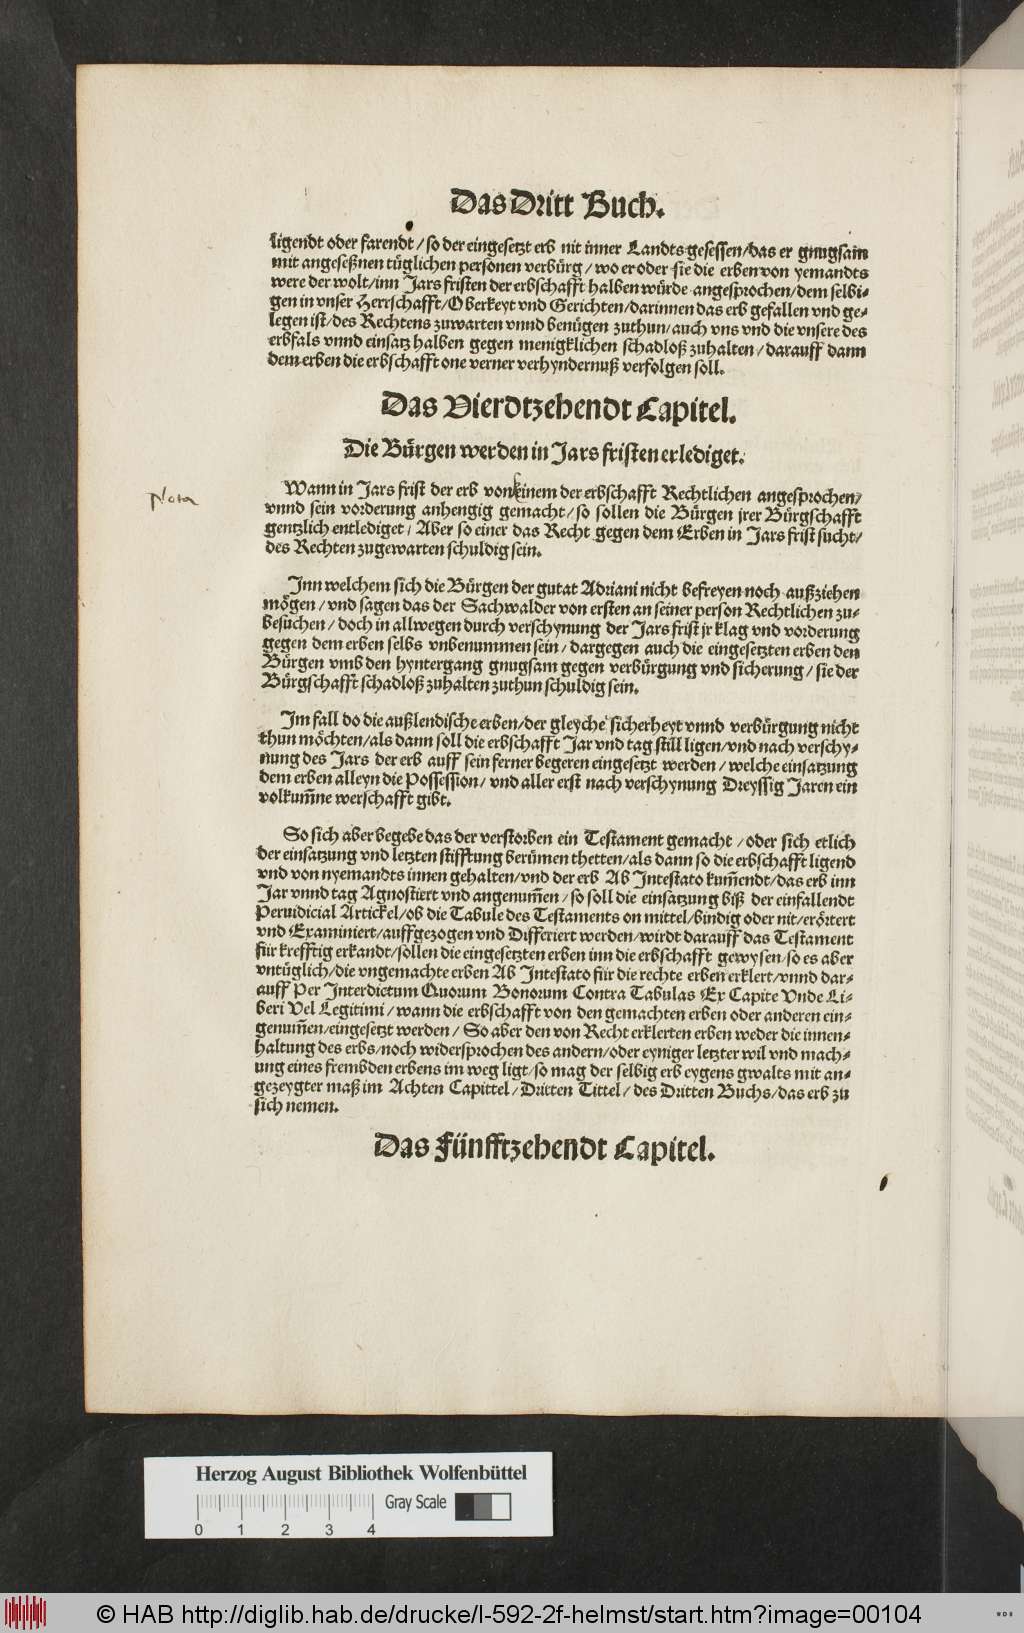 Das Dritt Buch.
ligendt oder farendt / so der eingesetzt erb nit inner Landts gesessen / das er gnugsam
mit angeseßnen tüglichen personen verbürg / wo er oder sie die erben von yemandts
were der wolt / inn Jars fristen der erbschafft halben würde angesprochen / dem selbi-
gen in vnser Herrschafft / Oberkeyt vnd Gerichten / darinnen das erb gefallen vnd ge-
legen ist / des Rechtens zuwarten vnnd benügen zuthun / auch vns vnd die vnsere des
erbfals vnnd einsatz halben gegen menigklichen schadloß zuhalten / darauff dann
dem erben die erbschafft one verner verhyndernuß verfolgen soll.
Das Vierdtzehendt Capitel.
Die Bürgen werden in Jars fristen erlediget.
Nota
Wann in Jars frist der erb von keinem der erbschafft Rechtlichen angesprochen /
vnnd sein vorderung anhengig gemacht / so sollen die Bürgen jrer Bürgschafft
gentzlich entlediget / Aber so einer das Recht gegen dem Erben in Jars frist sucht /
des Rechten zugewarten schuldig sein.
Inn welchem sich die Bürgen der gutat Adriani nicht befreyen noch außziehen
mögen / vnd sagen das der Sachwalder von ersten an seiner person Rechtlichen zu-
besuchen / doch in allwegen durch verschynung der Jars frist jr klag vnd vorderung
gegen dem erben selbs vnbenummen sein / dargegen auch die eingesetzten erben den
Bürgen vmb den hyntergang gnugsam gegen verbürgung vnd sicherung / sie der
Bürgschafft schadloß zuhalten zuthun schuldig sein.
Im fall do die außlendische erben / der gleyche sicherheyt vnnd verbürgung nicht
thun möchten / als dann soll die erbschafft Jar vnd tag still ligen / vnd nach verschy-
nung des Jars der erb auff sein ferner begeren eingesetzt werden / welche einsatzung
dem erben alleyn die Possession / vnd aller erst nach verschynung Dreyssig Jaren ein
volkum̅ne werschafft gibt.
So sich aber begebe das der verstorben ein Testament gemacht / oder sich etlich
der einsatzung vnd letzten stifftung berümen thetten / als dann so die erbschafft ligend
vnd von nyemandts innen gehalten / vnd der erb Ab Intestato kum̅endt / das erb inn
Jar vnnd tag Agnostiert vnd angenum̅en / so soll die einsatzung biß der einfallendt
Preiudicial Artickel / ob die Tabule des Testaments on mittel / bindig oder nit / erörtert
vnd Examiniert / auffgezogen vnd Differiert werden / wirdt darauff das Testament
für krefftig erkandt / sollen die eingesetzten erben inn die erbschafft gewysen / so es aber
vntüglich / die vngemachte erben Ab Intestato für die rechte erben erklert / vnnd dar-
auff Per Interdictum Quorum Bonorum Contra Tabulas Ex Capite Vnde Li-
beri Vel Legitimi / wann die erbschafft von den gemachten erben oder anderen ein-
genum̅en / eingesetzt werden / So aber den von Recht erklerten erben weder die innen-
haltung des erbs / noch widersprochen des andern / oder eyniger letzter wil vnd mach-
ung eines frembden erbens im weg ligt / so mag der selbig erb eygens gwalts mit an-
gezeygter maß im Achten Capittel / Dritten Tittel / des Dritten Buchs / das erb zu
sich nemen.
Das Fünfftzehendt Capitel.
Herzog August Bibliothek Wolfenbüttel
Gray Scale
0 1 2 3 4
© HAB http://diglib.hab.de/drucke/l-592-2f-helmst/start.htm?image=00104